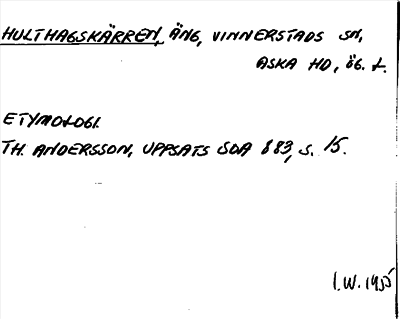 HULTHAGSKÄRREN, ÄNG, VINNERSTADS SN,
ASKA HD, ÖG. L.
ETYMOLOGI.
TH. ANDERSSON, UPPSATS SOA 883, S. 15.
I.W. 1955